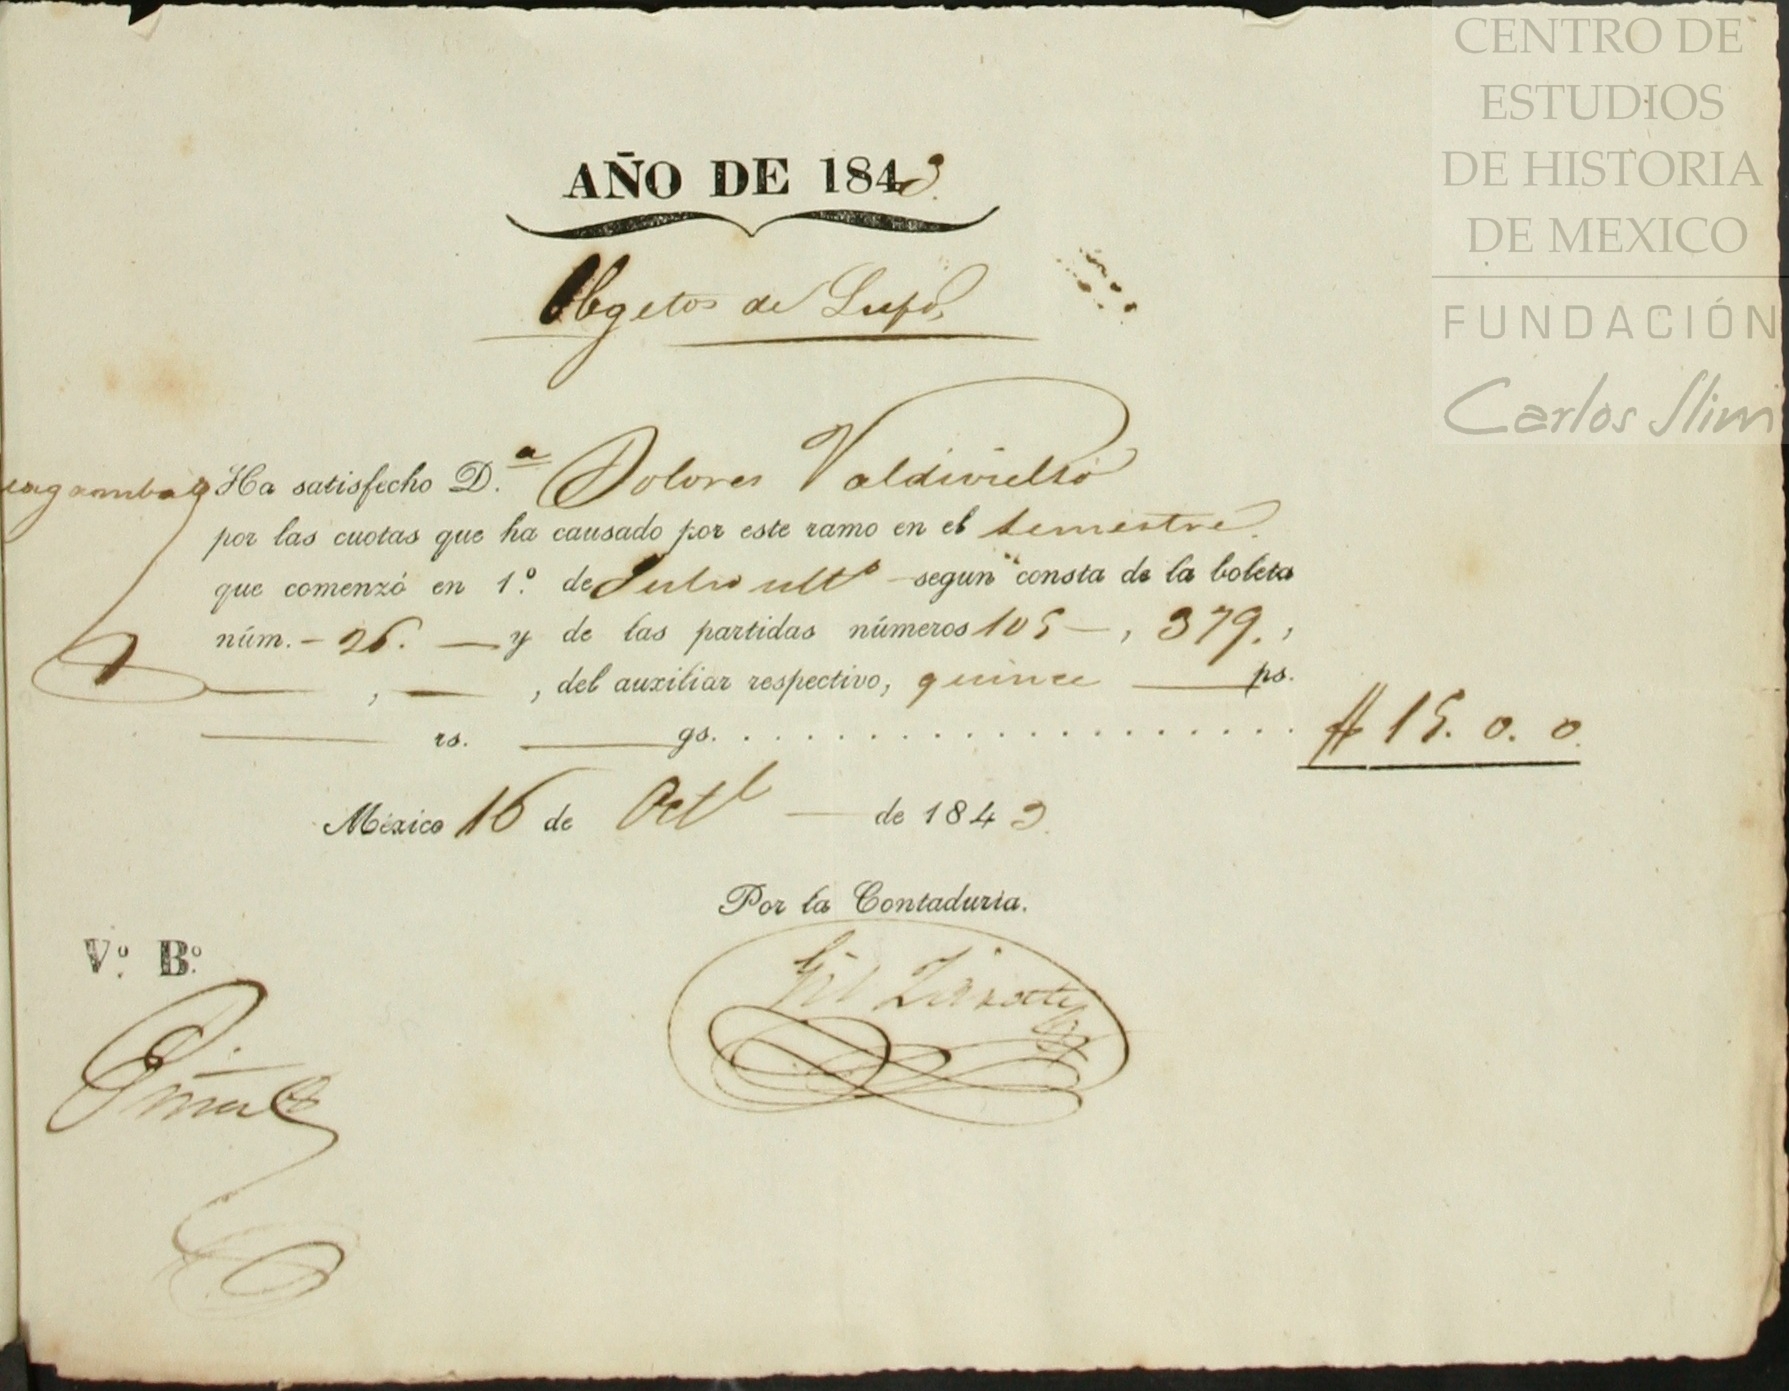 CENTRO DE
ESTUDIOS
DE HISTORIA
DE MEXICO
FUNDACIÓN
Carlos Slim
AÑO DE 1843.
Obgetos de Lujo,
Ha satisfecho D.ª Dolores Valdivielso
por las cuotas que ha causado por este ramo en el semestre.
que comenzó en 1.º de Julio ult.º segun consta de la boleta
núm. - 26. — y de las partidas números 105 —, 379. ,
—— , —— , del auxiliar respectivo, quince —— ps.
—— rs. —— gs. . . . . . . . . . . . . . . . . . . . $ 15. 0. 0.
México 16 de Oct.e — de 1843.
Por la Contaduria.
V.º B.º
Gil Zarate